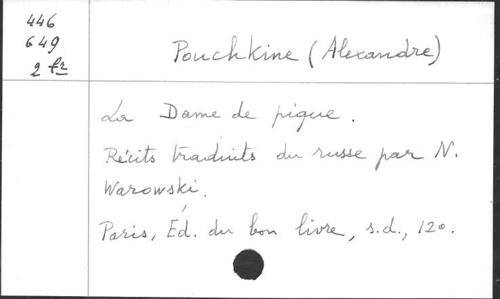 446
649
2 fr
Pouchkine (Alexandre)
La Dame de pique.
Récits traduits du russe par N.
Warowski.
Paris, Éd. du bon livre, s.d., 12o.